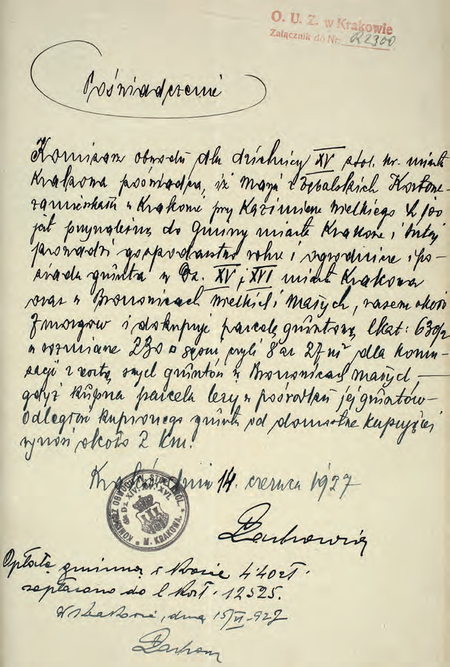 O. U. Z. w Krakowie
Załącznik do Nr. 22300
Poświadczenie
Komisarz obwodu dla dzielnicy XV stoł. kr. miasta
Krakowa poświadcza, iż Marya z Kostone-
zamieszkała w Krakowie przy Kazimierza Wielkiego L 100
jest przynależną do Gminy miasta Krakowa i tutaj
prowadzi gospodarstwo rolne i ogrodnicze i po-
siada grunta w Dz. XV i XVI miasta Krakowa
oraz w Bronowicach Wielkich i Małych, razem około
7 morgów i dokupuje parcelę gruntową lkat: 630/2
w rozmiarze 230 □ sążni czyli 8 ar 27 m² dla koma-
sacji z resztą swych gruntów w Bronowicach małych —
gdyż kupna parcela leży w pośrodku jej gruntów —
Odległość kupionego gruntu od domostwa kupującej
wynosi około 2 km.
Kraków dnia 14. czerwca 1927
KOMISARZ OBWODOWY
DZ. XIV. XV. XVI.
M. KRAKOWA
Opłatę gminną w kwocie 4.40 zł.
zapłacono do l. 12525.
W Krakowie, dnia 15/VI 927